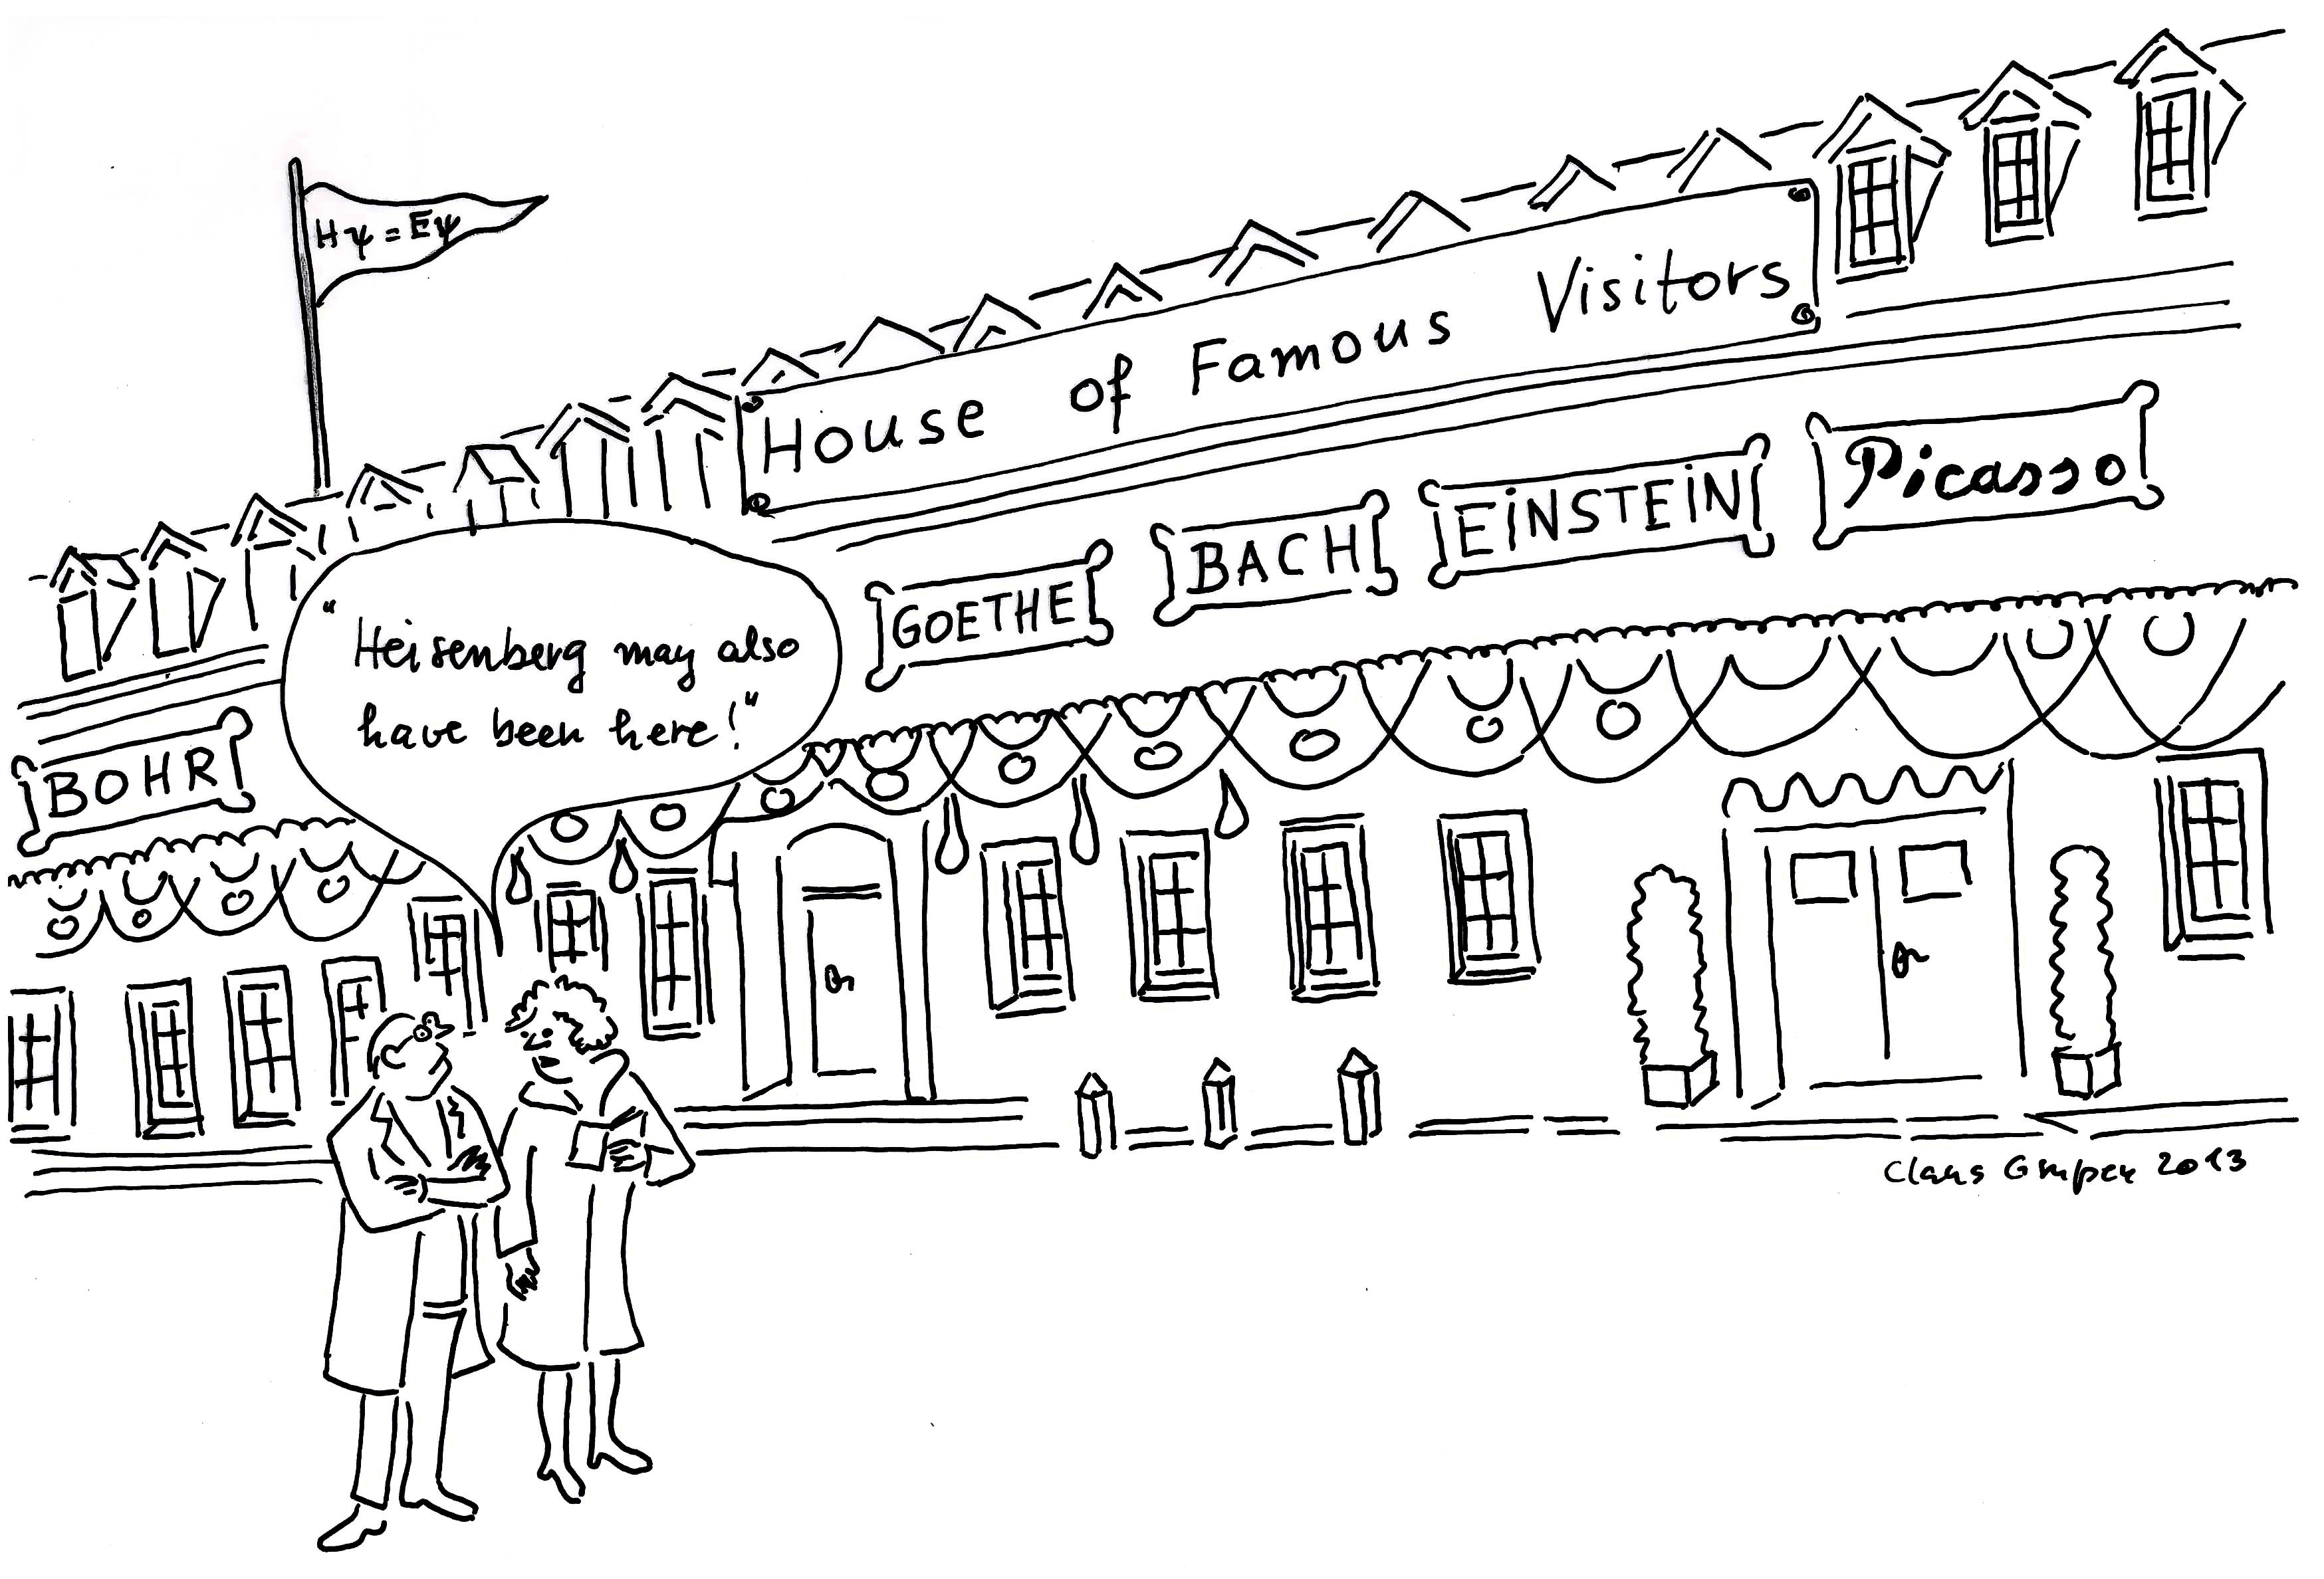 Hψ = Eψ
House of Famous Visitors
Picasso
EINSTEIN
BACH
GOETHE
"Heisenberg may also
have been here!"
BOHR
Claus Grupen 2013